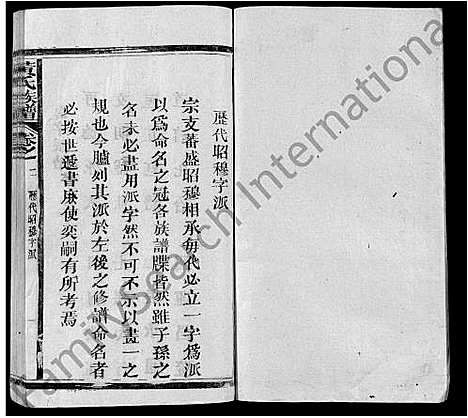 歷代昭穆字派
宗支蕃盛昭穆相承每代必立一字爲派
以爲命名之冠各族譜牒皆然雖子孫之
名未必盡用派字然不可不示以畫一之
規也今臚列其派於左後之修譜命名者
必按世遞書庶使奕嗣有所考焉
氏族譜
卷之二
歷代昭穆字派
一
FamilySearch International